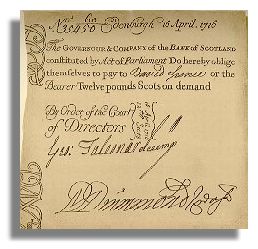 Edenburgh 16 April. 1716
The Governour & Company of the Bank of Scotland
constituted by Act of Parliament Do hereby oblige
themselves to pay to David Spence or the
Bearer Twelve pounds Scots on demand
By Order of the Court
of Directors
Drummond